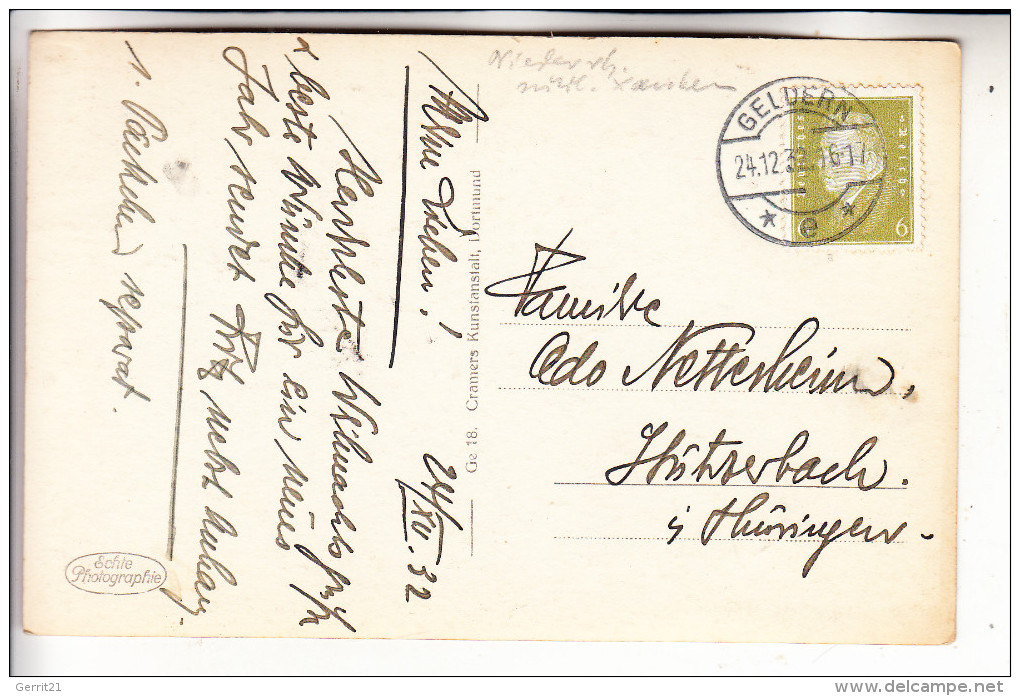 Meine Lieben!
24/XII. 32
Herzlichste Weihnachtsgrüße
& beste Wünsche für ein neues
Jahr sendet Fritz nebst Anhang.
1. Päckchen separat.
Niederrh.
Ge 18. Cramers Kunstanstalt, Dortmund
Echte
Photographie
GELDERN
24.12.32. 16-17
* e *
6
Familie
Ado Nettesheim,
Stützerbach.
i/ Thüringen.
Gerrit21
delcampe.net